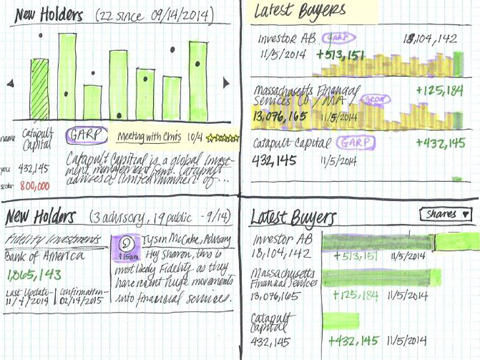 New Holders (22 since 09/14/2014)
name Catapult Capital GARP Meeting with Clients 10/4
you 432,145
sector 800,000
Catapult Capital is a global invest-
ment management firm. Catapult
advises a limited number of ...
Latest Buyers
Investor AB GARP 18,104,142
11/5/2014 +513,151
Massachusetts Financial +125,184
Services Co / MA
13,096,165 11/5/2014
Catapult Capital GARP +432,145
432,145 11/5/2014
New Holders (3 advisory, 19 public - 9/14)
Fidelity Investments
Bank of America
1,065,143
Last Update- Confirmation-
11/7/2014 02/14/2015
Tyson McCabe, Advisory
Hey Sharon, this is
most likely Fidelity as they
have recent huge movements
into financial services.
Latest Buyers
Shares ▼
Investor AB
18,104,142 +513,151 11/5/2014
Massachusetts
Financial Services
13,096,165 +125,184 11/5/2014
Catapult
Capital
432,145 +432,145 11/5/2014